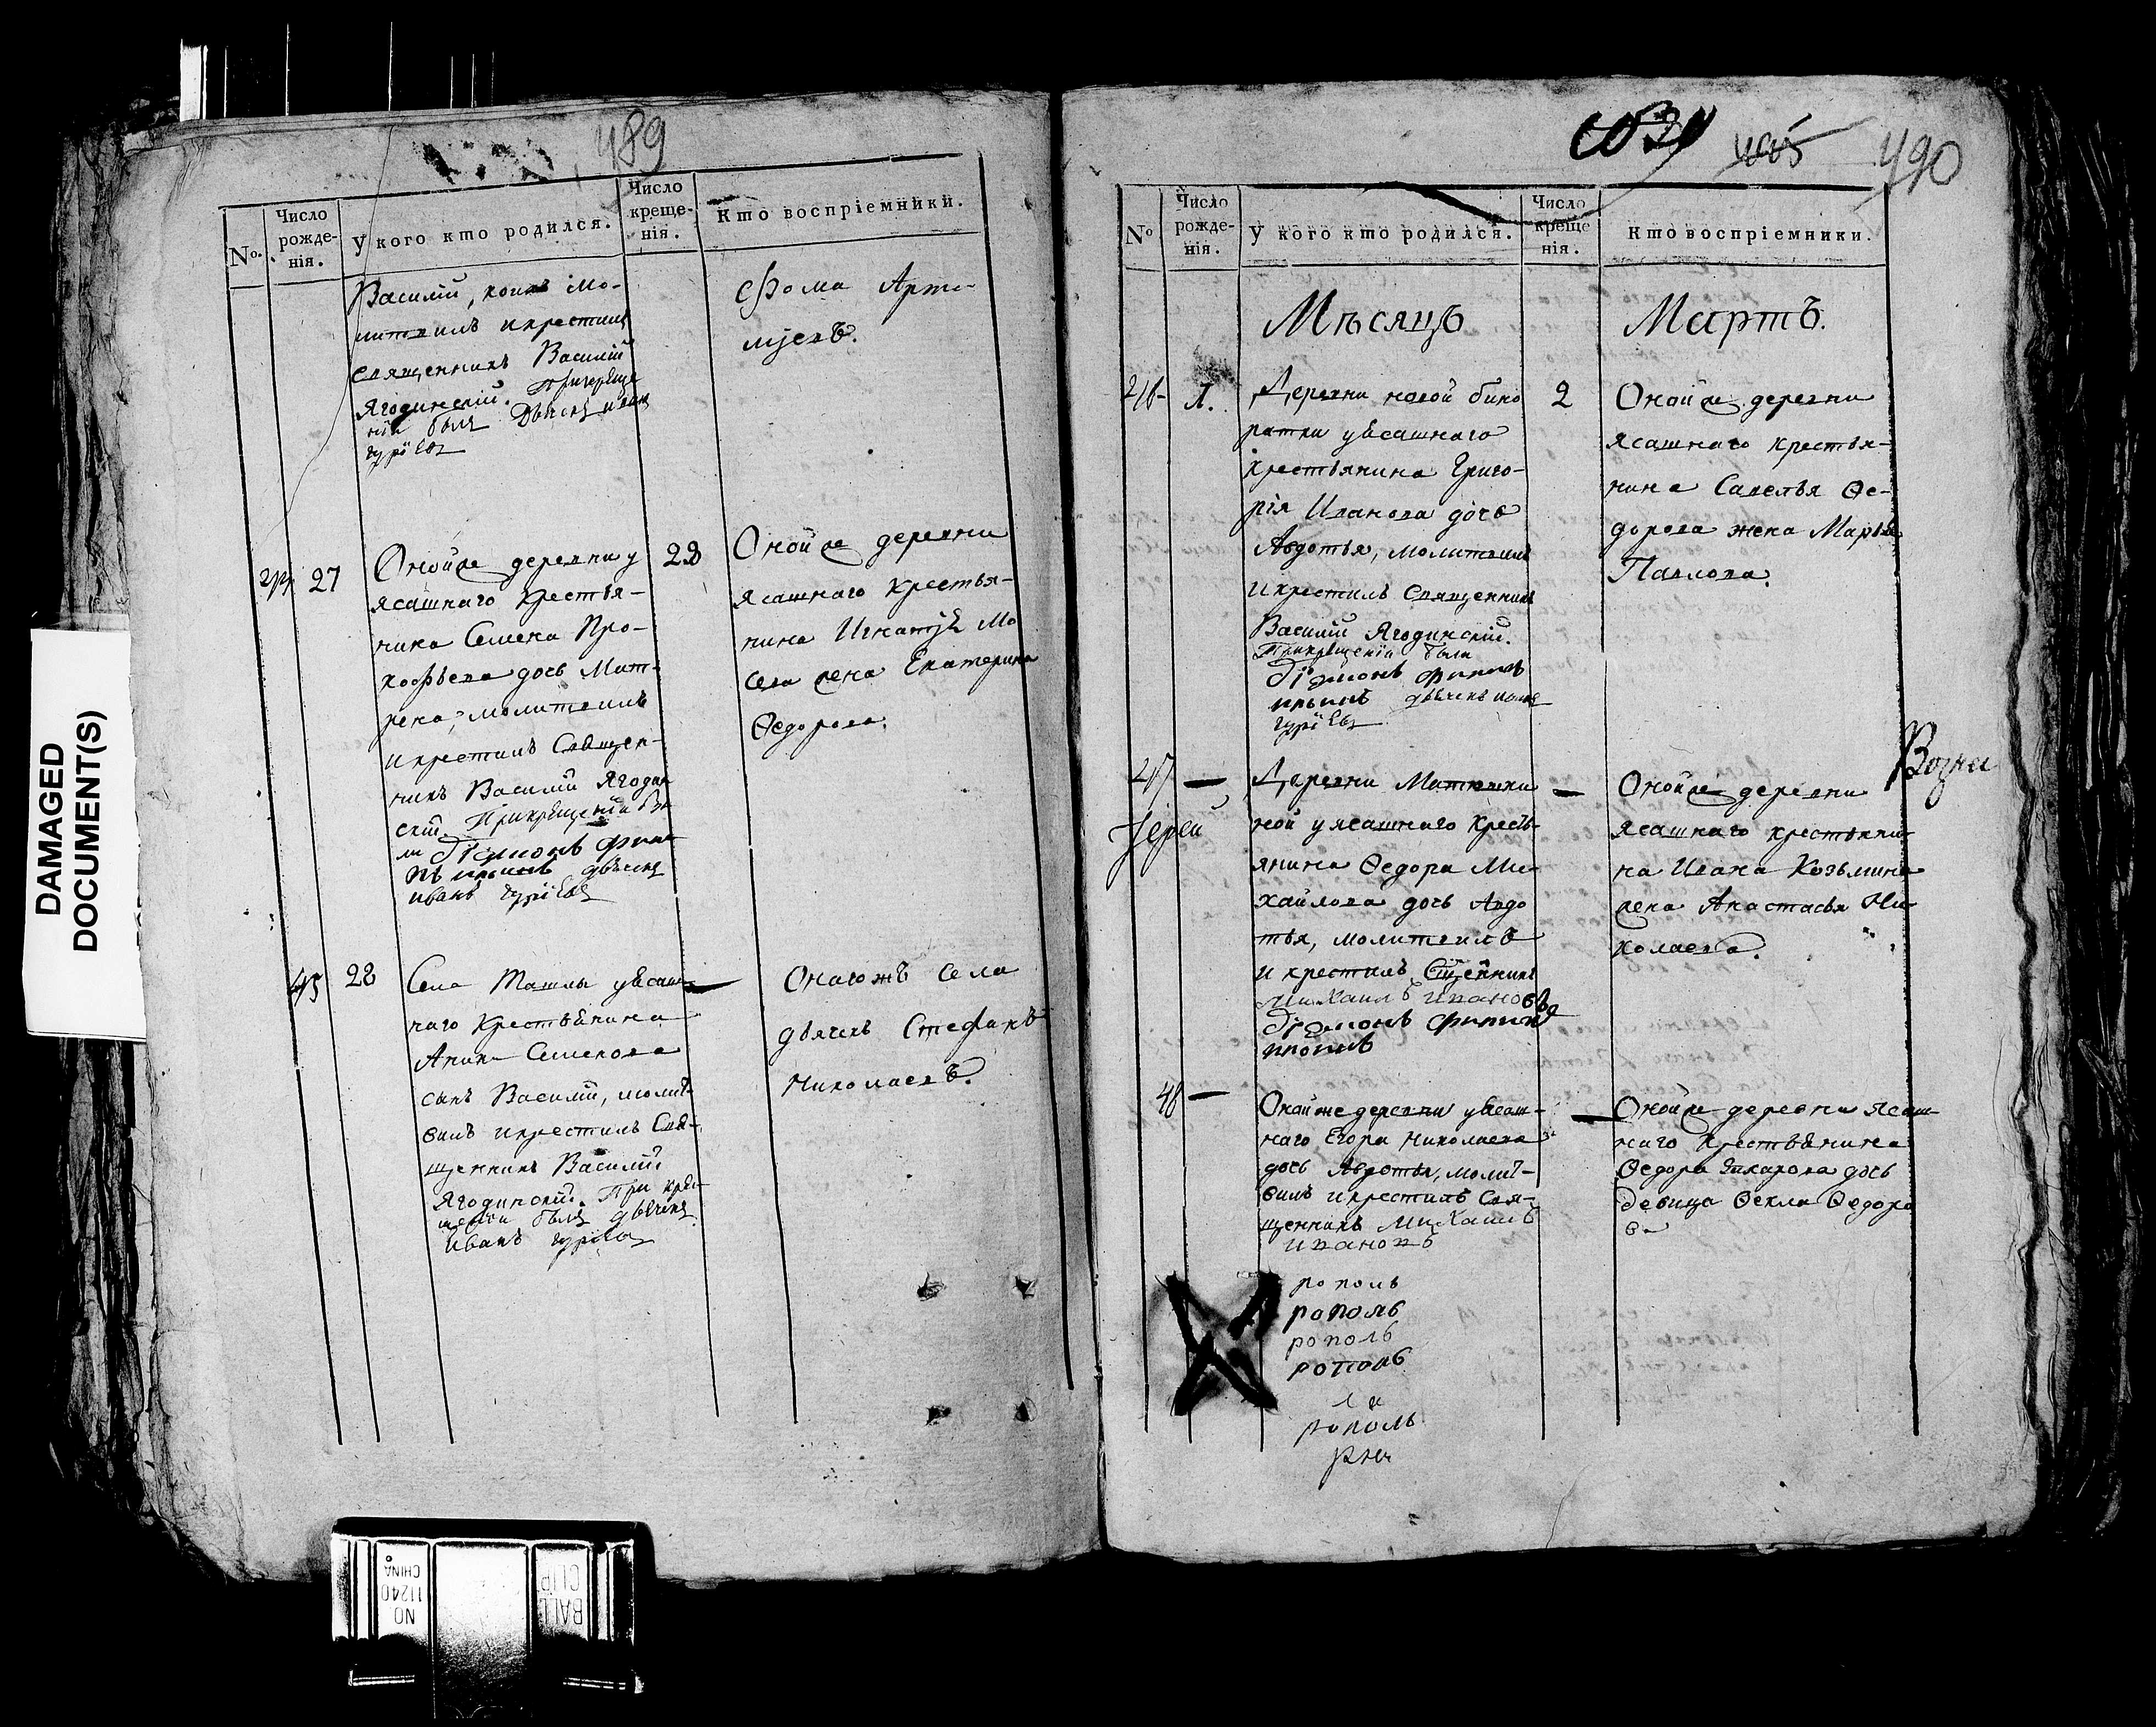 DAMAGED
DOCUMENT(S)
489
№.
Число рожде-нія.
У кого кто родился.
Число креще-нія.
Кто воспріемники.
Василій, коихъ мо-
литвилъ и крестилъ
священникъ Василій
Ягодинскій. При креще
ніи былъ Дьячекъ иванъ
гурiевъ
Фома Арте-
мьевъ.
27
Оной же деревни у
ясашнаго крестья-
нина Семена Про-
кофьева дочь Мат-
рена, молитвилъ
и крестилъ Священ-
никъ Василій Ягодин
скій. При крещеніи бы
ли
иванъ гурiевъ
28
Оной же деревни
ясашнаго крестья-
нина
жена Екатерина
Ѳедорова.
45
28
Села Ташлы у ясаш-
наго крестьянина
Семенова
сынъ Василій, молит-
вилъ и крестилъ Свя-
щенникъ Василій
Ягодинскій. При кре-
щеніи былъ дьячекъ
иванъ гурiевъ
—
Онагожъ Села
дьячекъ Стефанъ
Николаевъ.
490
№
Число рожде-нія.
У кого кто родился.
Число креще нія.
Кто воспріемники.
Мѣсяцъ
Мартъ.
46
1.
Деревни новой бино
ратки у ясашнаго
крестьянина Григо-
рія Иванова дочь
Авдотья, молитвилъ
и крестилъ Священникъ
Василій Ягодинскій.
При крещеніи были
дьячекъ иванъ
гурiевъ
2
Оной же деревни
ясашнаго крестья-
нина Савелья Ѳе-
дорова жена Марья
Павлова.
47
—
Деревни Матюшки
ной у ясашнаго кресть-
янина Ѳедора Ми-
хайлова дочь Авдо
тья, молитвилъ
и крестилъ Сщенникъ
Михаилъ Ивановъ
—
Оной же деревни
ясашнаго крестьяни-
на Ивана Козьмина
жена Анастасья Ни-
колаева.
Іерей
Возне
48
—
Оной же деревни у ясаш-
наго Егора Николаева
дочь Авдотья, молит-
вилъ и крестилъ Свя-
щенникъ Михаилъ
Ивановъ
—
Оной же деревни ясаш-
наго крестьянина
Ѳедора Захарова дочь
девица Ѳекла Ѳедоро
ва
рополь
рополь
рополь
рополь
рополь
NO.
11240
CHINA
BALL
CLIP